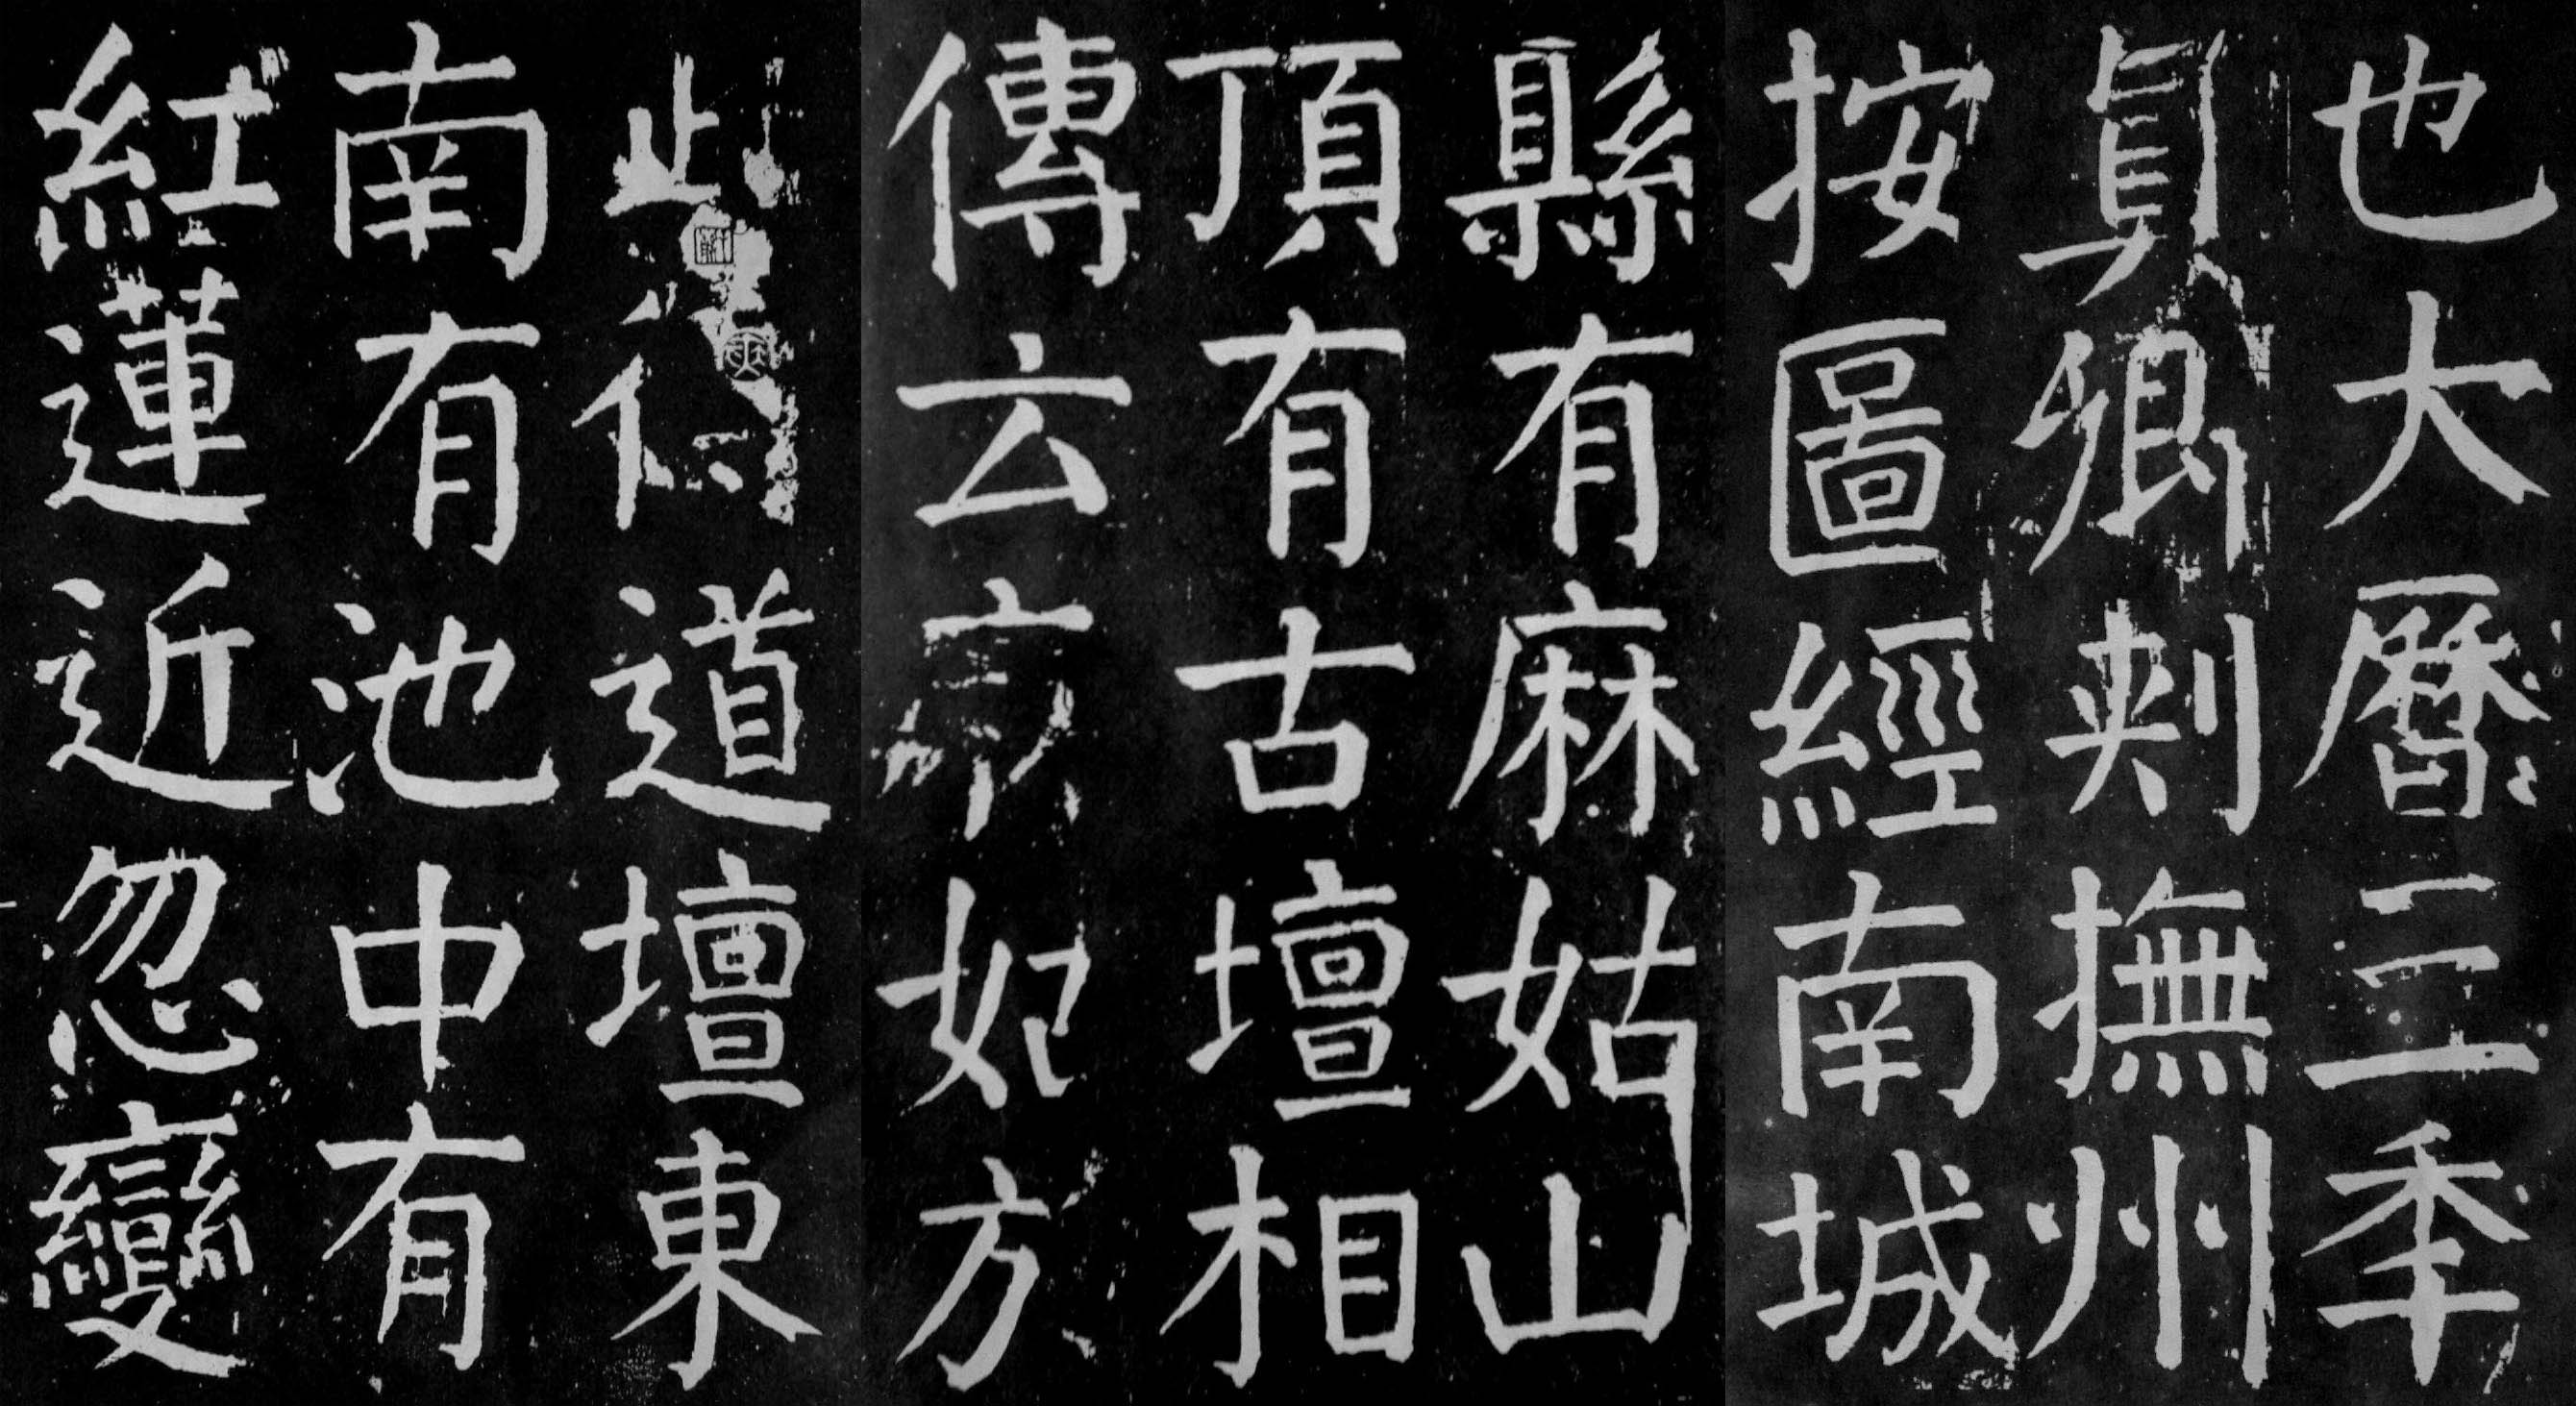 也大曆三秊
眞卿刾撫州
按圖經南城
縣有麻姑山
頂有古壇相
傳云麻姑於
此得道壇東
南有池中有
紅蓮近忽變